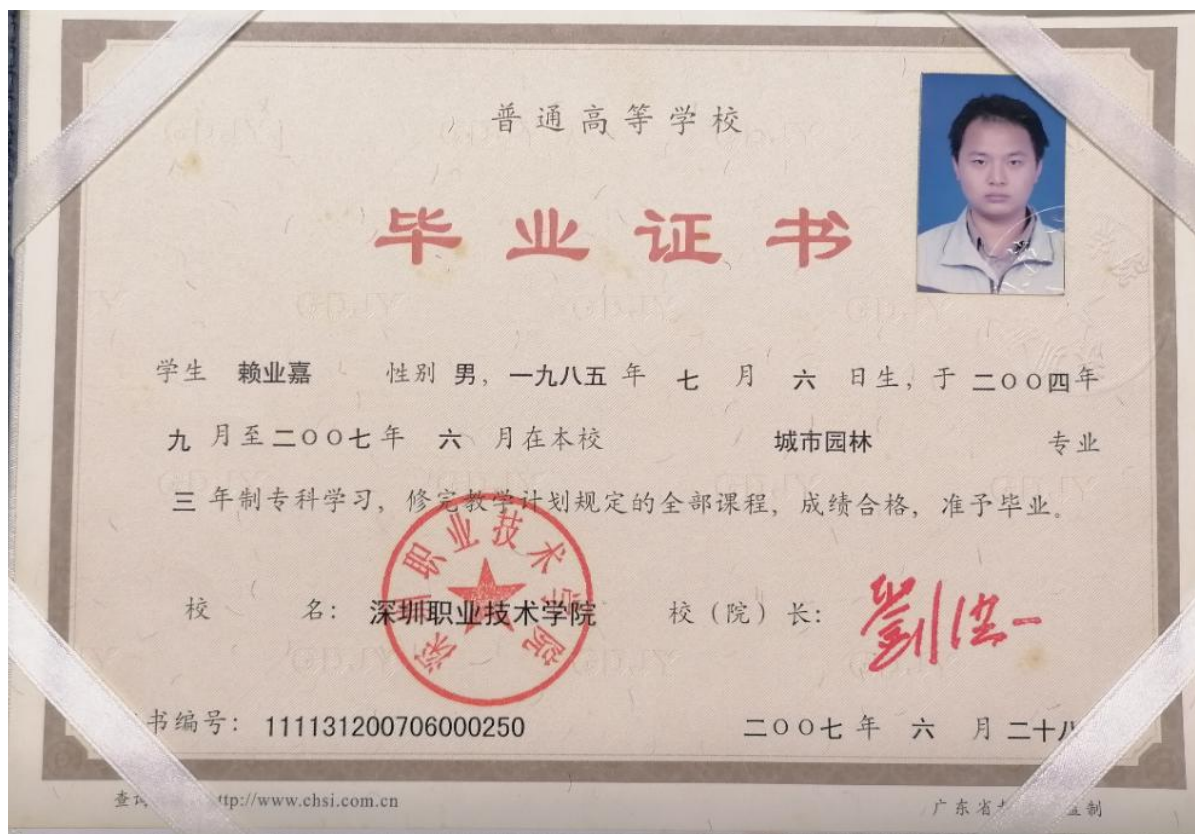 普通高等学校
毕业证书
学生 赖业嘉 性别 男，一九八五 年 七 月 六 日生，于 二〇〇四年
九 月至二〇〇七年 六 月在本校 城市园林 专业
三 年制专科学习，修完教学计划规定的全部课程，成绩合格，准予毕业。
校 名：深圳职业技术学院 校（院）长：劉洪一
深圳职业技术学院
书编号：111131200706000250 二〇〇七年 六 月 二十八
查 ttp://www.chsi.com.cn 广东省 监制